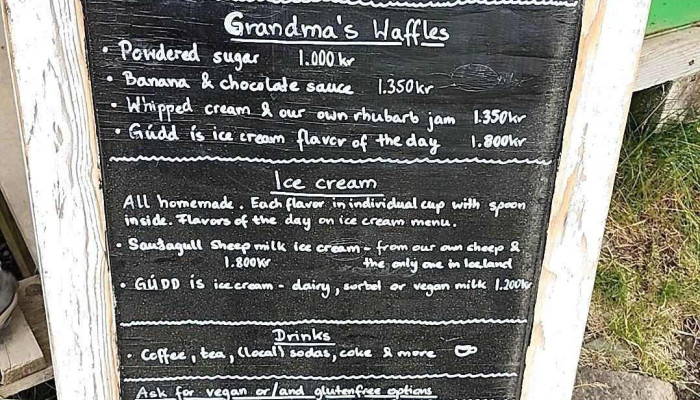 Grandma's Waffles
• Powdered sugar 1.000 kr
• Banana & chocolate sauce 1.350 kr
• Whipped cream & our own rhubarb jam 1.350 kr
• Gúdd ís ice cream flavor of the day 1.800 kr
Ice cream
All homemade. Each flavor in individual cup with spoon
inside. Flavors of the day on ice cream menu.
• Sauðagull Sheep milk ice cream - from our own sheep &
1.800 kr the only one in Iceland
• GÚDD ÍS ice cream - dairy, sorbet or vegan milk 1.200 kr
Drinks
• Coffee, tea, (local) sodas, coke & more
Ask for vegan or/and glutenfree options